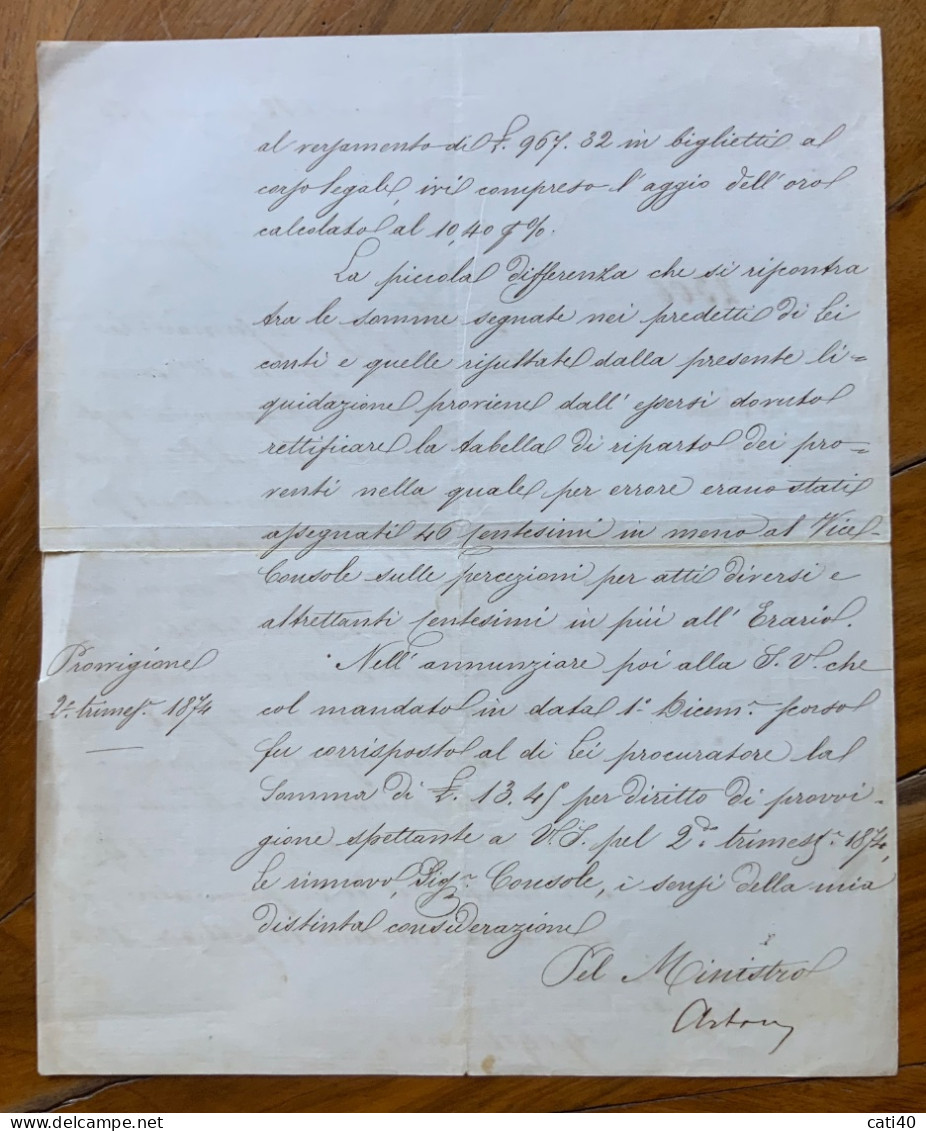 al versamento di £. 967.32 in biglietti al
corso legale, ivi compreso l'aggio dell'oro
calcolato al 10,40 p%.
La piccola differenza che si riscontra
tra le somme segnate nei predetti di Lei
conti e quelle risultate dalla presente li=
quidazione proviene dall'essersi dovuto
rettificare la tabella di riparto dei pro=
venti nella quale per errore erano stati
assegnati 46 centesimi in meno al Vice
Console sulle percezioni per atti diversi e
altrettanti centesimi in più all'Erario.
Provvigione
2º trimesre 1874
Nell'annunziare poi alla S.V. che
col mandato in data 1º Dicemre scorso
fu corrisposto al di Lei procuratore la
Somma di £. 13.45 per diritto di provvi=
gione spettante a V.S. pel 2do trimesre 1874,
Le rinnovo, Sigr Console, i sensi della mia
distinta considerazione
Pel Ministro
cati40